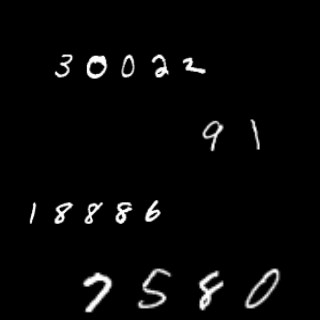 30022
91
18886
7580